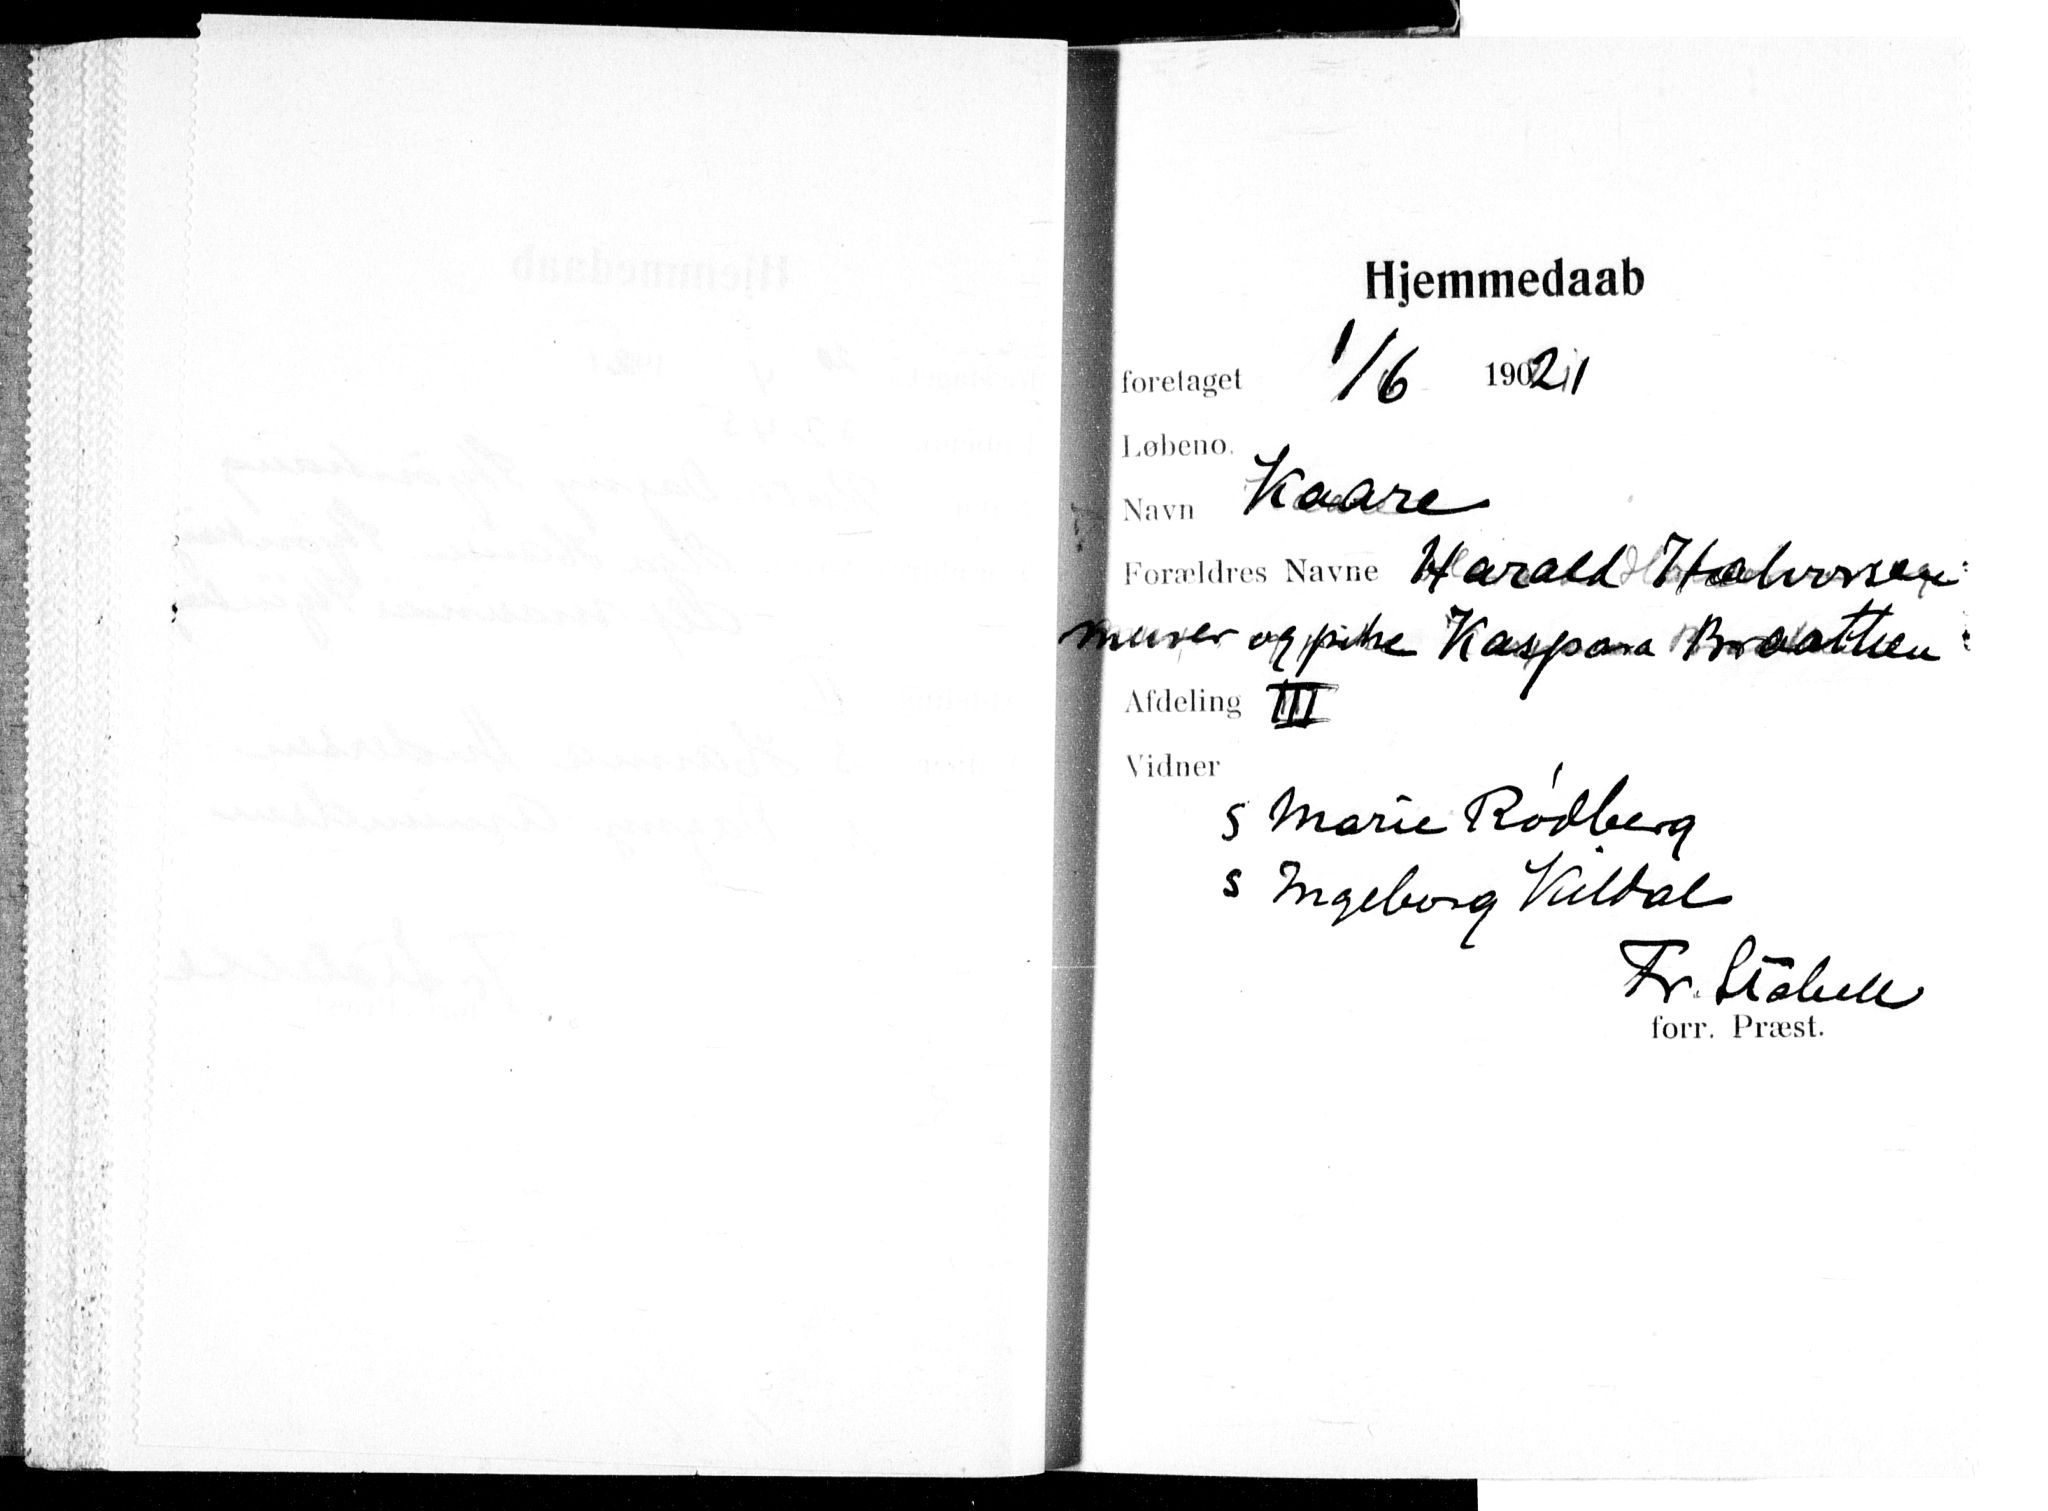 Hjemmedaab
foretaget 1/6 19021
Løbeno.
Navn Kaare
Forældres Navne Harald Halvorsen
murer og pike Kaspara Braathen
Afdeling III
Vidner
s Marie Rødberg
s Ingeborg Kildal
Fr. Stabell
forr. Præst.